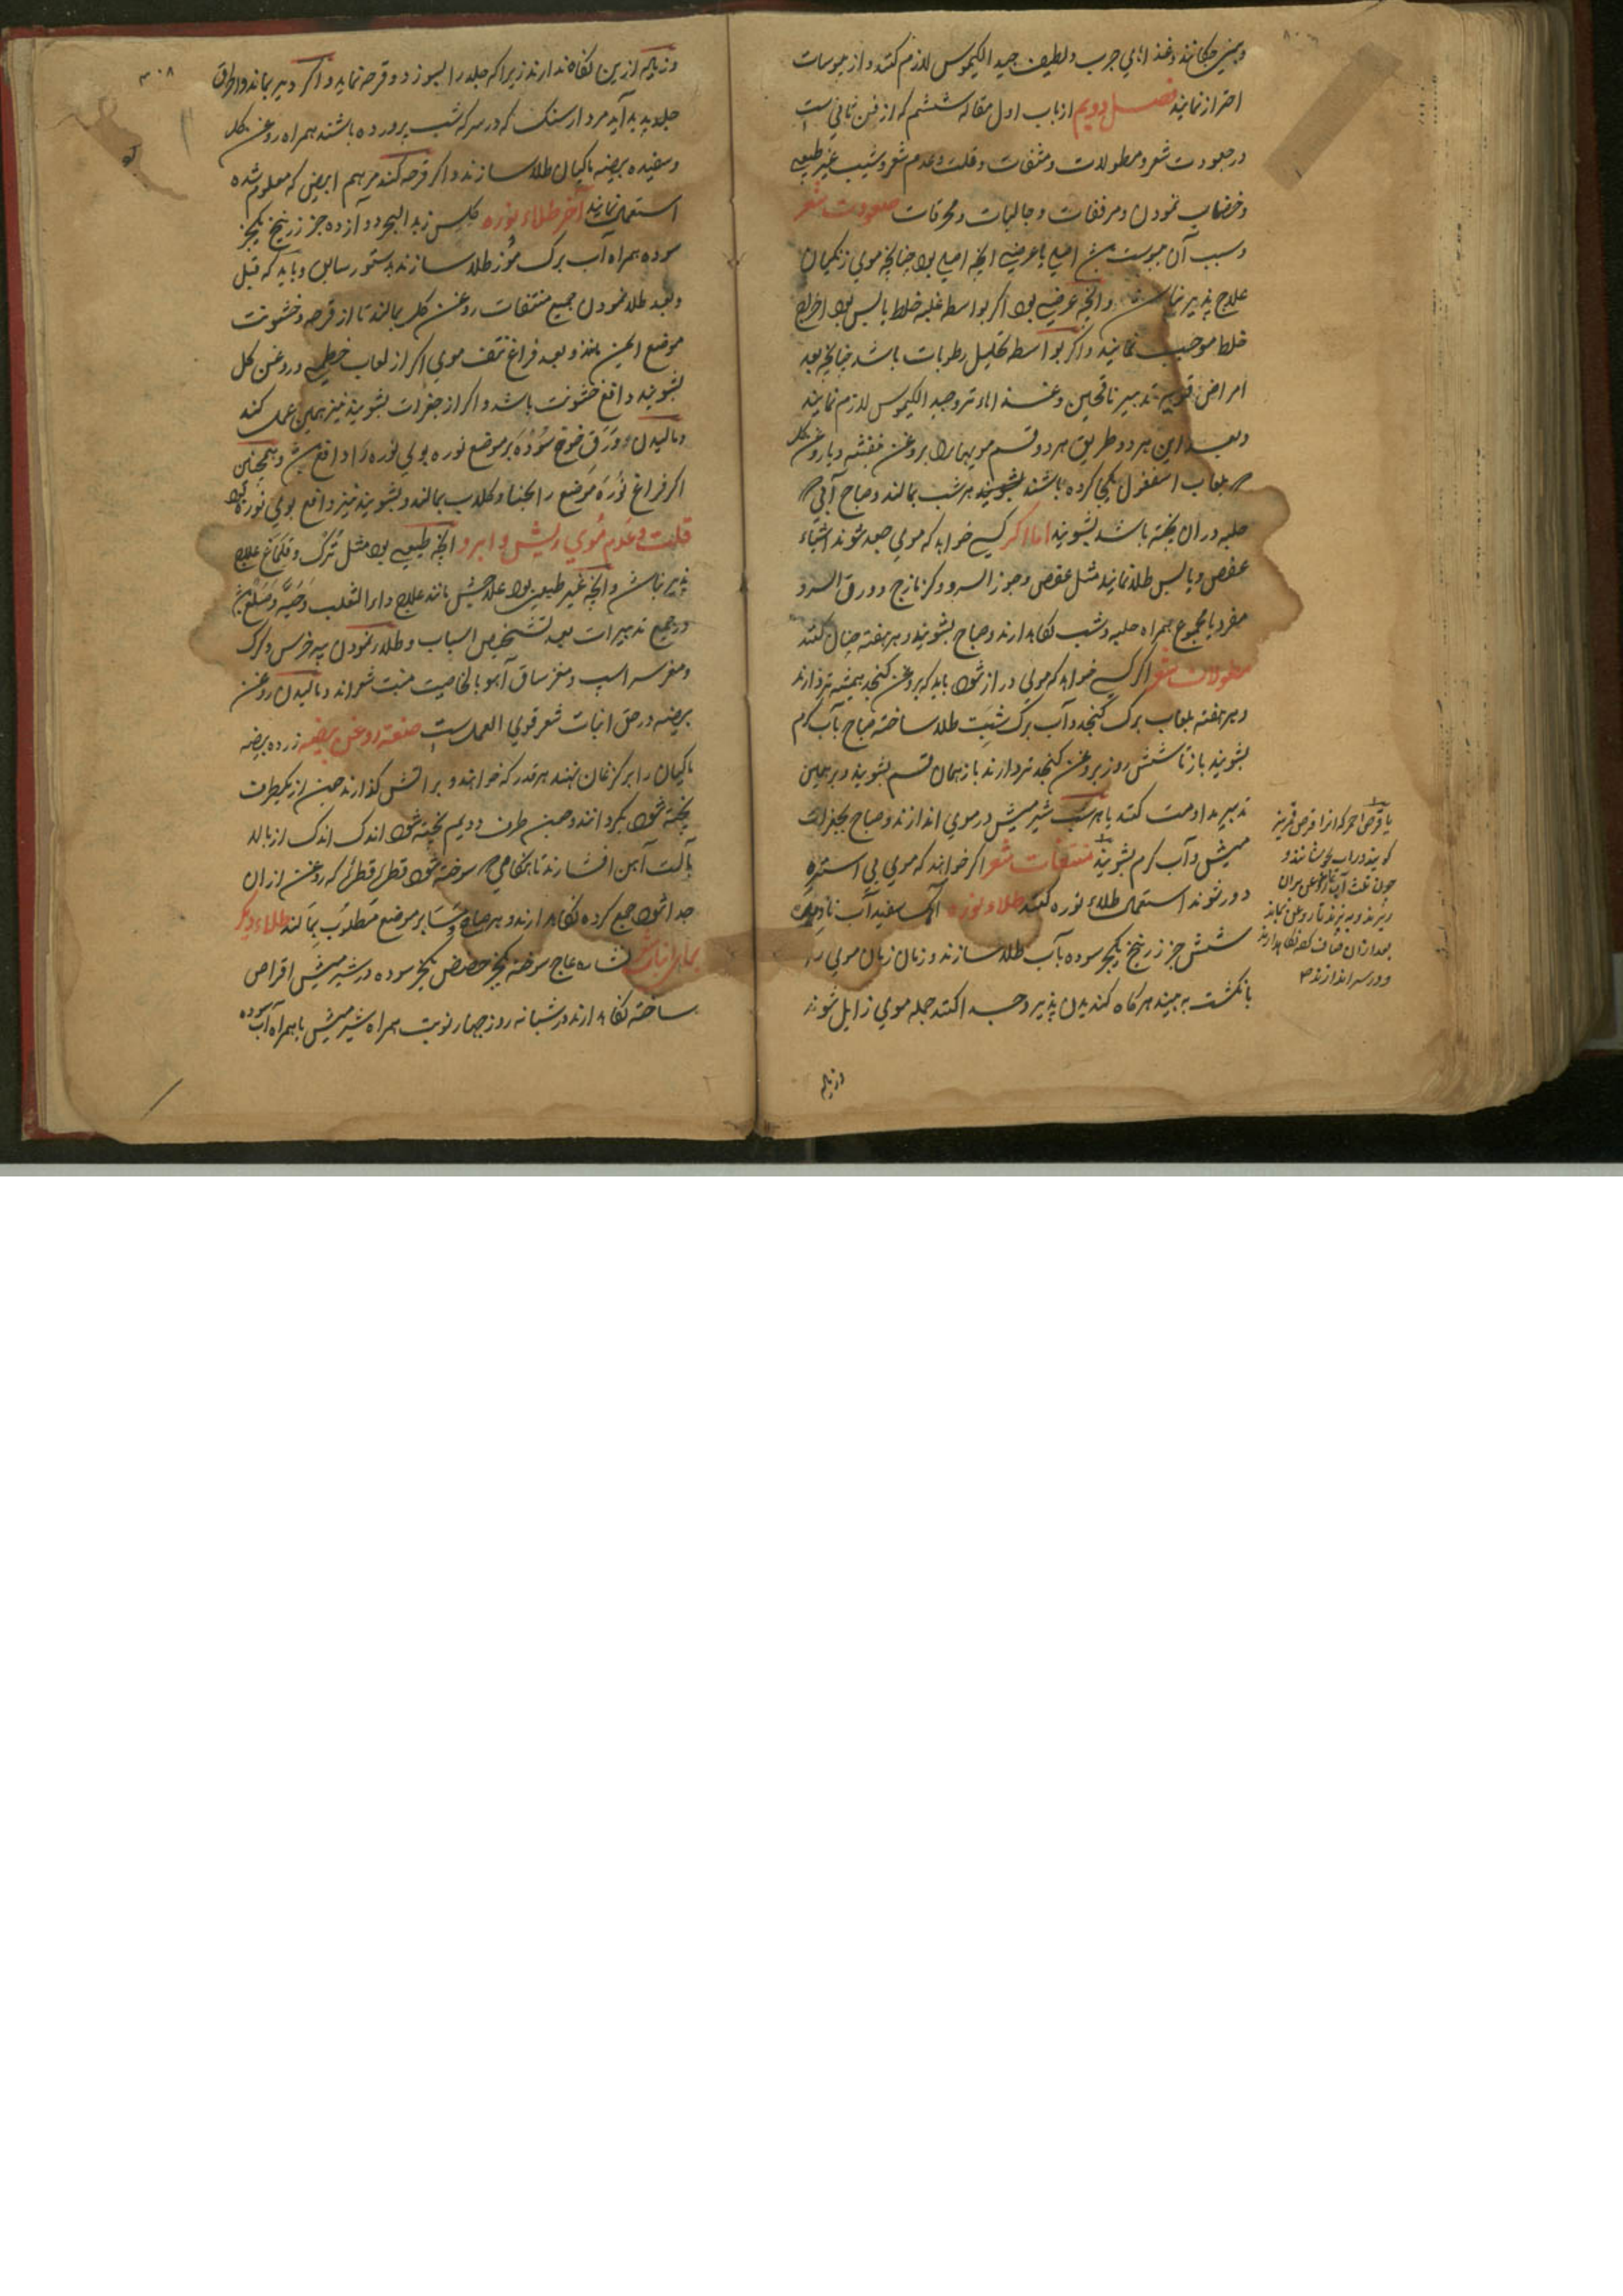 وغذاهاي چرب ولطيف جيد الكيموس لازم كنند واز يبوسات
احتراز نمايند فصل دويم از باب اول مقاله ششم كه از فن ثاني است
در جعودت شعر ومطولات ومنتفات وقلت وعدم شعر وشيب غير طبيعي
وخضاب نمودن ومرققات وجاليات ومحرقات جعودت شعر
وسبب آن يبوست اصلي يا عرضي انچه اصلي بود چنانچه موي زنكيان
علاج پذير نباشد وانچه عرضي بود اكر بواسطه غلبه خلط يابس بود اخراج
خلط موجب نمايند واكر بواسطه تحليل رطوبات باشد چنانچه بعد
امراض قويه تدبير ناقهين وغذاهاء تر وجيد الكيموس لازم نمايند
وبعد اين هر دو طريق هر دو قسم مويهارا بروغن بنفشه ويا روغن كل
بلعاب اسفغول يكجا كرده باشند هر شب بمالند وصباح آبي
حلبه در ان پخته باشند بشويند اما اكر كسي خواهد كه موي جعد شوند اشياء
عفص ويابس طلا نمايند مثل عفص وجوز السرو وكزنازج وورق السرو
مفرد يا مجموع همراه حلبه وشب نكاه دارند وصباح بشويند وهر هفته چنان كنند
مطولات شعر اكر كسي خواهد كه موي دراز شود بايد كه بروغن كنجد هميشه تر دارند
وهر هفته بلعاب برك كنجد وآب برك شبت طلا ساخته صباح بآب كرم
بشويند باز تا شش روز بروغن كنجد تر دارند باز همان قسم بشويند وبر همين
تدبير مداومت كنند يا هر شب شير ميش در موي اندازند وصباح بجغرات
ميش وآب كرم بشويند منتفات شعر اكر خواهند كه موي بي استره
دور شوند استعمال طلاء نوره كنند طلاء نوره آهك سفيد آب ناديده
شش جز زرنيخ يكجز سوده بآب طلا سازند وزمان زمان موي را
بانكشت به بينند هركاه كنديدن پذيرد جدا كنند جمله موي زايل شوند
وزياده
يا قرص احمر كه انرا قرص قرمز
كويند در اب بجوشانند و
چون ثلث آب
ريزند وبپزند تا روغن بماند
بعد ازان صاف كرده نكاه دارند
ودر سر اندازند
٣٠٨
وزياده ازين نكاه ندارند زيرا كه جلد را بسوزد وقرحه نمايد واكر دير بماند واحراق
جلد پديد آيد مردارسنك كه در سركه شب پرورده باشند همراه روغن كل
وسفيده بيضه ماكيان طلا سازند واكر قرحه كند مرهم ابيض كه معلوم شده
استعمال نمايند آخر طلاء نوره كلس زبد البحر دوازده جز زرنيخ يكجز
سوده همراه آب برك موز طلا سازند بدستور سابق وبايد كه قبل
وبعد طلا نمودن جميع منتفات روغن كل بمالند تا از قرحه وخشونت
موضع ايمن مانند وبعد فراغ نتف موي اكر از لعاب خطمي وروغن كل
بشويند دافع خشونت باشد واكر از جغرات بشويند نيز همين عمل كند
وماليدن ورق خوخ سوده بر موضع نوره بوي نوره را دافع وهمچنين
اكر فراغ نوره موضع را بحنا وكلاب بمالند وبشويند نيز دافع بوي نوره بود
قلت وعدم موي ريش وابرو انچه طبيعي بود مثل ترك وقلماغ علاج
پذير نباشد وانچه غير طبيعي بود علاجش مانند علاج داء الثعلب وحيه وصلع
ودر جميع تدبيرات بعد تشخيص اسباب وطلا نمودن پيه خرس وكرك
ومغز سر اسپ ومغز ساق آهو بالخاصيت منبت شعراند وماليدن روغن
بيضه در حق انبات شعر قوي العمل است صنعة روغن بيضه زرده بيضه
ماكيان را بر كزغان نهند هر قدر كه خواهند وبر آتش كذارند چون از يكطرف
پخته شود بكردانند وچون طرف دويم پخته شود اندك اندك از بالا
بآلت آهن افشارند تا هنكامي سوخته شود قطره قطره كه روغن ازان
جدا شود جمع كرده نكاه دارند وهر صباح ومسا بر موضع مطلوب بمالند طلاء ديكر
براي انبات نشاره عاج سوخته يكجز حضض يكجز سوده در شير ميش اقراص
ساخته نكاه دارند در شبانه روز چهار نوبت همراه شير ميش يا همراه آب سوده